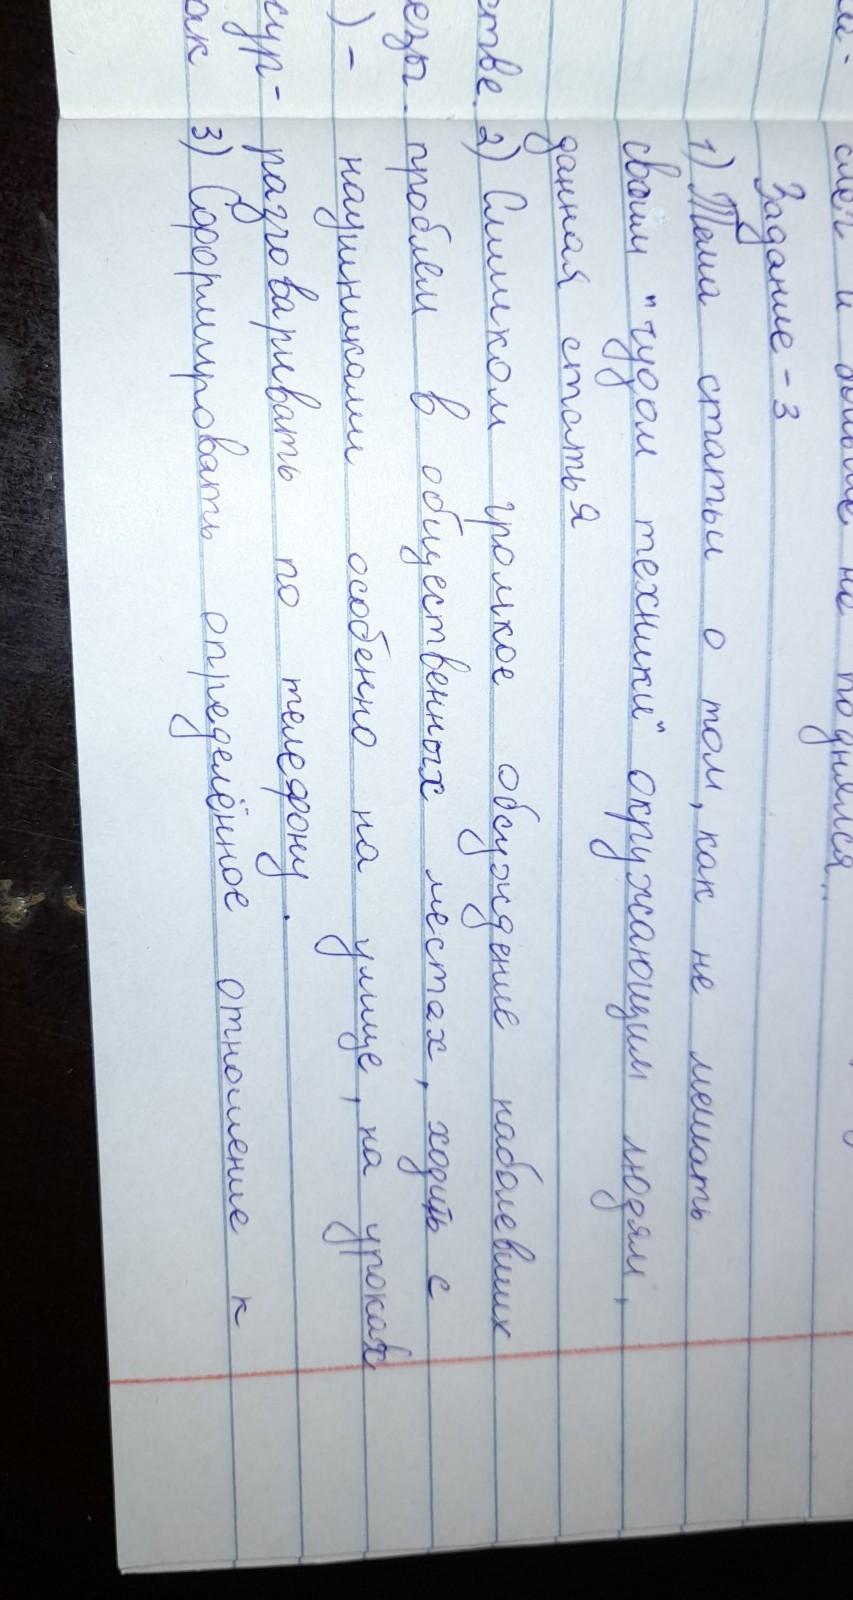 смех и больше не поднялся..
Задание - 3
1) Тема статьи о том, как не мешать
своим "чудом техники" окружающим людям,
данная статья
стве. 2) Слишком громкое обсуждение наболевших
езы. проблем в общественных местах, ходить с
)- наушниками особенно на улице, на уроках
сур- разговаривать по телефону.
ак 3) Сформировать определённое отношение к